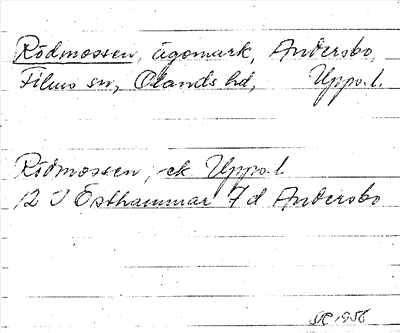 Rödmossen, ägomark, Andersbo,
Films sn, Olands hd, Upps. l.
Rödmossen, ek Upps. l.
12 I Östhammar 7d Andersbo
1956